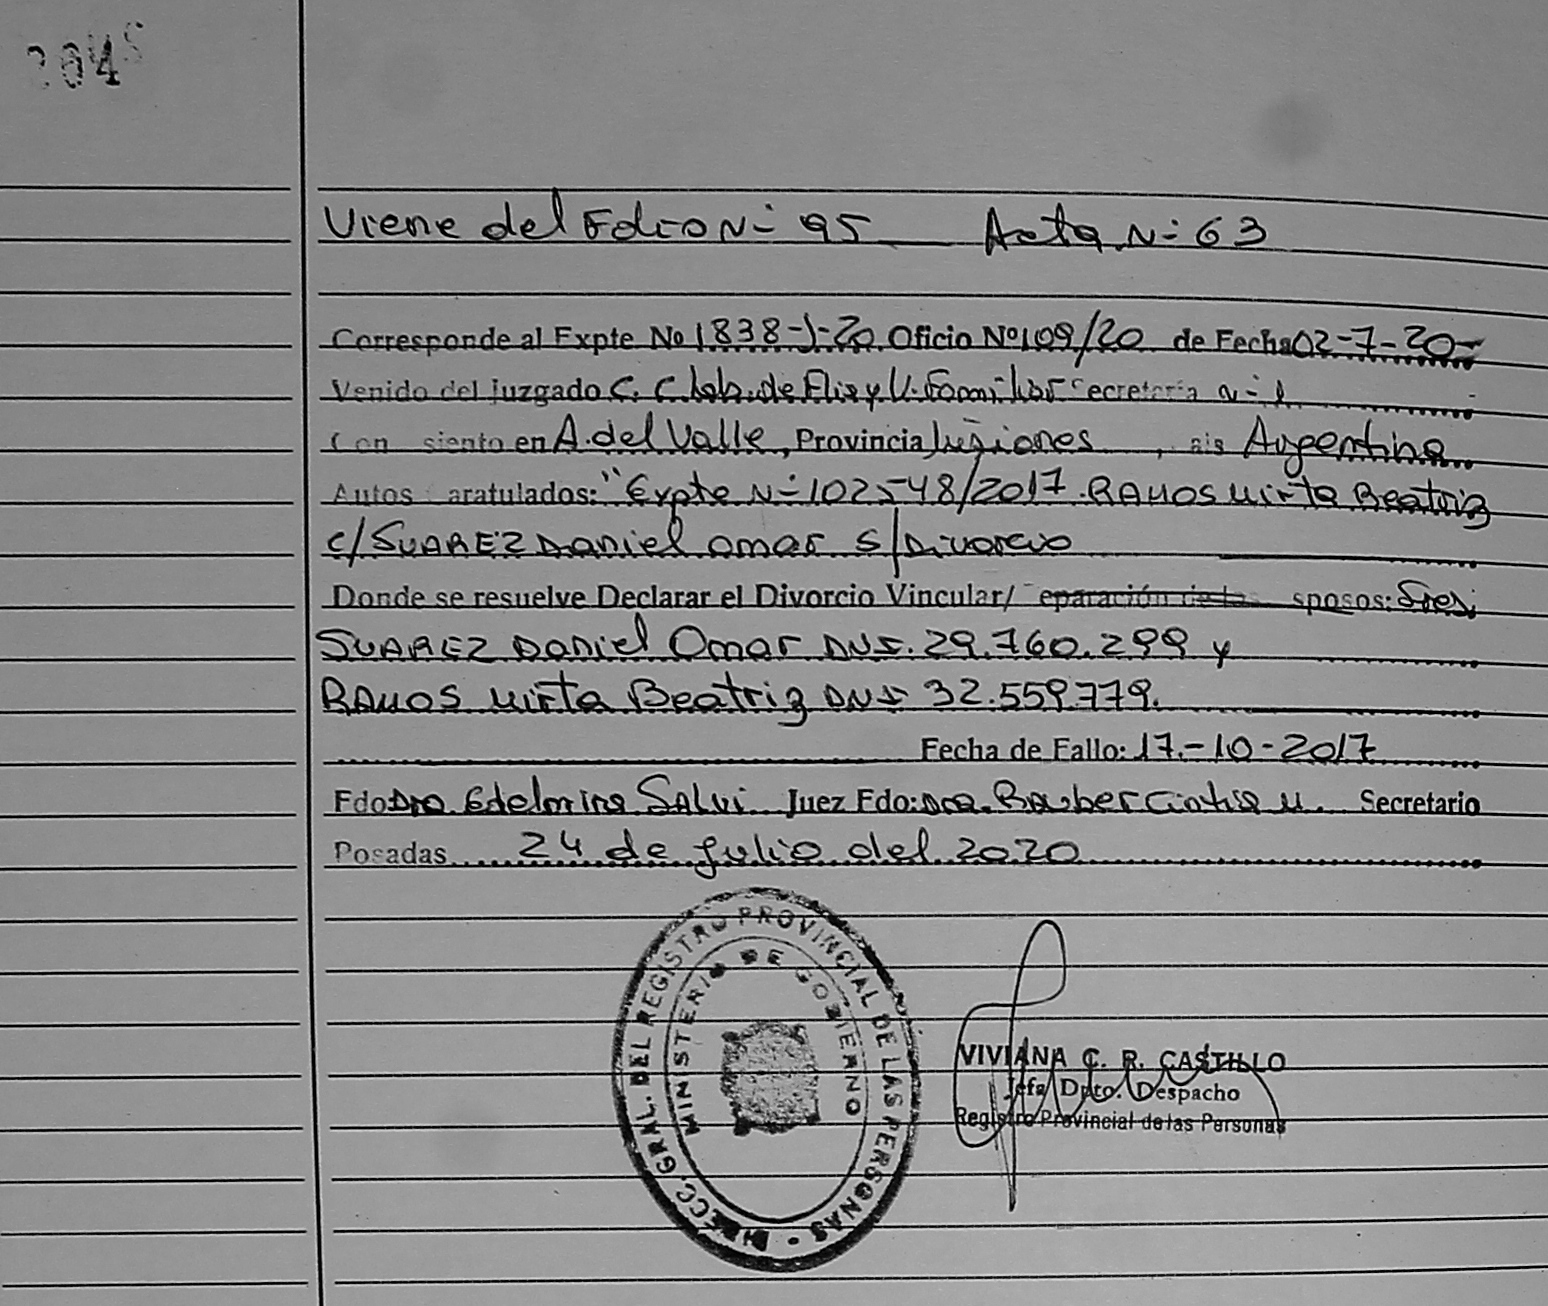 2045
Viene del Folio N= 95 Acta N= 63
Corresponde al Expte No 1838-J-20 Oficio Nº109/20 de Fecha 02-7-20-
Venido del Juzgado C. C. Lab. de Flia y V. Familiar Secretaría N=1
Con siento en A. del Valle, Provincia Misiones, ais Argentina
Autos aratulados: "Expte N=102548/2017 RAMOS Mirta Beatriz
c/ SUAREZ Daniel Omar S/Divorcio
Donde se resuelve Declarar el Divorcio Vincular/ eparación de los sposos: Sres:
SUAREZ Daniel Omar DNI. 29.760.299 y
RAMOS Mirta Beatriz DNI 32.559.779.
Fecha de Fallo: 17-10-2017
Fdo Dra Edelmira Salvi Juez Fdo: Dra. Cintia M. Secretario
Posadas 24 de Julio del 2020
DIRECC. GRAL. DEL REGISTRO PROVINCIAL DE LAS PERSONAS
MINISTERIO DE GOBIERNO
VIVIANA C. R. CASTILLO
Jefa Dpto. Despacho
Registro Provincial de las Personas